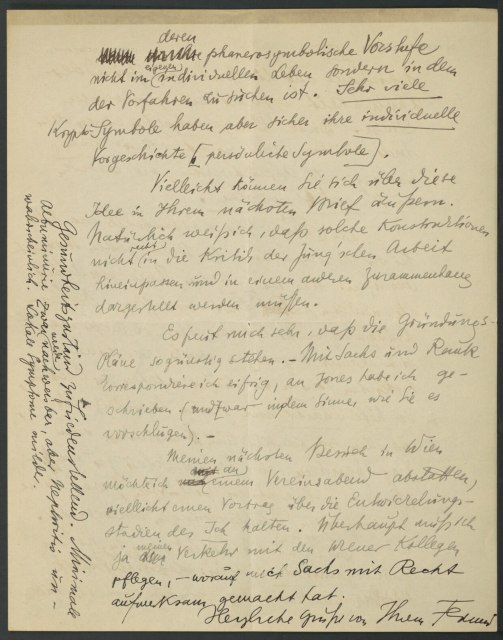 deren
phanerosymbolische Vorstufe
nicht im eigenen (individuellen Leben sondern in dem
der Vorfahren zu suchen ist. Sehr viele
Krypto-Symbole haben aber sicher ihre individuelle
Vorgeschichte (persönliche Symbole).
Vielleicht können Sie sich über diese
Idee in Ihrem nächsten Brief äußern.
Natürlich weiß ich, daß solche Konstruktionen
nicht in die Kritik der Jung'schen Arbeit
hineinpassen und in einem anderen Zusammenhang
dargestellt werden müssen.
Es freut mich sehr, daß die Gründungs-
Pläne so günstig stehen. – Mit Sachs und Rank
korrespondiere ich eifrig, an Jones habe ich ge-
schrieben (und zwar in dem Sinne, wie Sie es
vorschlugen). –
Meinen nächsten Besuch in Wien
möchte ich an einem Vereinsabend abstatten,
vielleicht einen Vortrag über die Entwicklungs-
stadien des Ich halten. Überhaupt muß ich
ja meinen Verkehr mit den Wiener Kollegen
pflegen, – worauf mich Sachs mit Recht
aufmerksam gemacht hat.
Herzliche Grüße von Ihrem
Gesundheitszustand zufriedenstellend. Minimale
Albuminurie zwar nachweisbar, aber Nephritis un-
wahrscheinlich. Lokale Symptome milder.